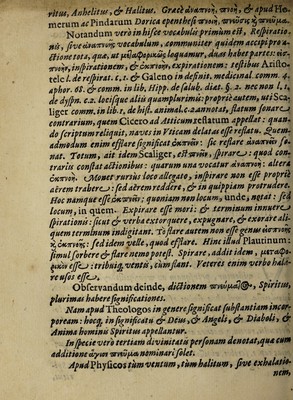 ritus, Anhelitus, & Halitus. Græcè ἀναπνοὴ, πνοὴ, & apud Ho-
merum ac Pindarum Dorica epenthesi πνοιὴ, πνεῦσις & πνεῦμα.
Notandum verò in hisce vocabulis primùm est, Respiratio-
nis, sive ἀναπνοῆς vocabulum, communiter quidem accipi pro a-
ctione tota, quæ, ut μεταφορικῶς loquamur, duas habet partes: εἰσ-
πνοὴν, inspirationem, & ἐκπνοὴν, expirationem: testibus Aristo-
tele l. de respirat. c. 2. & Galeno in definit. medicinal. comm. 4.
aphor. 68. & comm. in lib. Hipp. de salub. diæt. §. 2. nec non l. 1.
de dyspn. c. 2. locisque aliis quamplurimis: propriè autem, uti Sca-
liger comm. in lib. 1. de hist. animal. c. 2. annotat, flatum sonare
contrarium, quem Cicero ad Atticum reflatum appellat: quan-
do scriptum reliquit, naves in Uticam delatas esse reflatu. Quem-
admodum enim efflare significat ἐκπνεῖν: sic reflare ἀναπνεῖν so-
nat. Totum, ait idem Scaliger, est πνεῖν, spirare: quod con-
trariis constat actionibus: quarum una vocatur ἀναπνοὴ: altera
ἐκπνοή. Monet rursus loco allegato, inspirare non esse propriè
aërem trahere: sed aërem reddere, & in quippiam protrudere.
Hoc namque esse ἐκπνοὴν: quoniam non locum, unde, notat: sed
locum, in quem. Expirare esse mori: & terminum innuere
spirationis: sicut & verba extorquere, expugnare, & exorare ali-
quem terminum indigitant. To flare autem non esse genus εἰσπνοῆς
& ἐκπνοῆς: sed idem velle, quod efflare. Hinc illud Plautinum:
simul sorbere & flare nemo potest. Spirare, addit idem, μεταφο-
ρικὸν esse: tribuiq. ventis, cùm flant. Veteres enim verbo hala-
re usos esse.
Observandum deinde, dictionem πνεῦμα, Spiritus,
plurimas habere significationes.
Nam apud Theologos in genere significat substantiam incor-
poream: hocq. in significatu & Deus, & Angeli, & Diaboli, &
Anima hominis Spiritus appellantur.
In specie verò tertiam divinitatis personam denotat, quæ cum
additione ἅγιον πνεῦμα nominari solet.
Apud Physicos tùm ventum, tùm halitum, sive exhalatio-
nem,